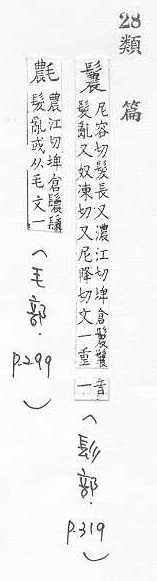 28類
篇
鬞 尼容切髮長又濃江切埤倉鬞鬟
髮亂又奴凍切又尼降切文一重
一音
(髟部.
p.319)
氉 農江切埤倉鬞鬟
髮亂或从毛文一
(毛部.
p.299)